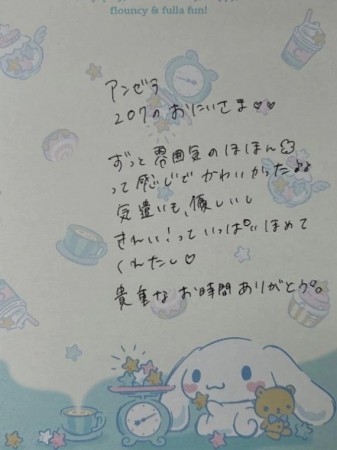 flouncy & fulla fun!
アンゼラ
207のおにいさま♡♡
ずっと雰囲気のほほん
って感じでかわいかった♪♪
気遣いも、優しいし
きれい!っていっぱいほめて
くれたし♡
貴重なお時間ありがとう。